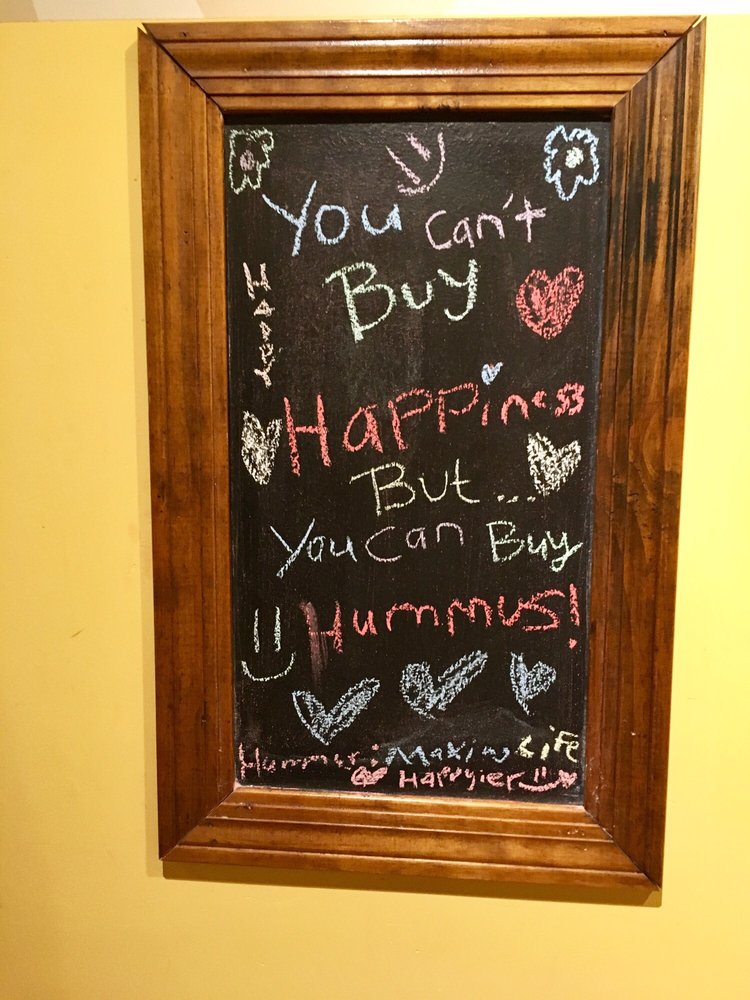 You can't
Buy
Happiness
But...
You can Buy
Hummus!
Hummus: Making Life
Happyier